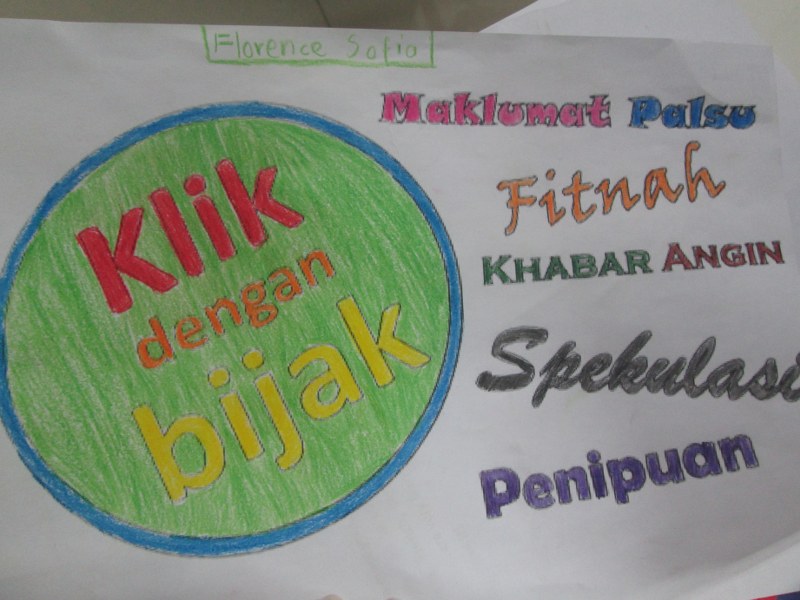 Florence Sofia
Klik
dengan
bijak
Maklumat Palsu
Fitnah
KHABAR ANGIN
Spekulasi
Penipuan